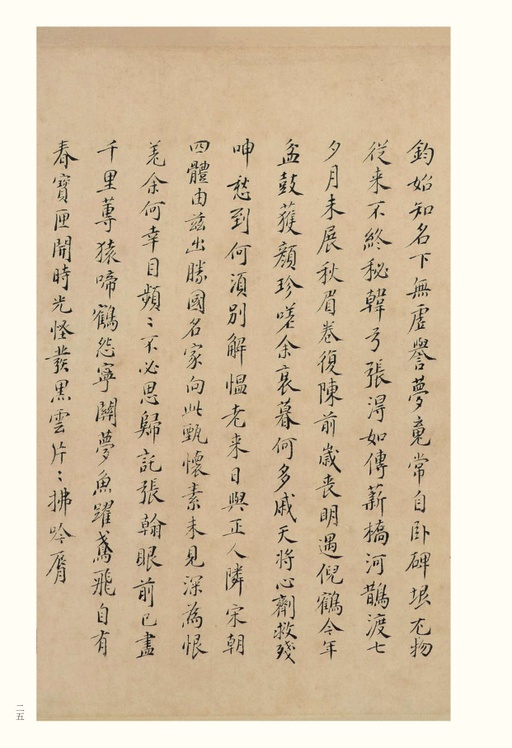 鈞始知名下無虛譽夢寬常自卧碑埧尤物
從来不終秘韓亏張淂如傳薪橋河鵲渡七
夕月未展秋眉卷復陳前歲喪明遇倪鶴今年
盆鼓獲顏珍嗟余衰暮何多戚天將心劑救殘
呻愁到何須別解愠老来日與正人隣宋朝
四體由兹出勝國名家向此甄懷素未見深為恨
羌余何幸目頻〻不必思歸託張翰眼前已盡
千里蓴猿啼鶴怨寧關夢魚躍鳶飛自有
春寶匣開時光怪發黑雲片〻拂吟脣
二五